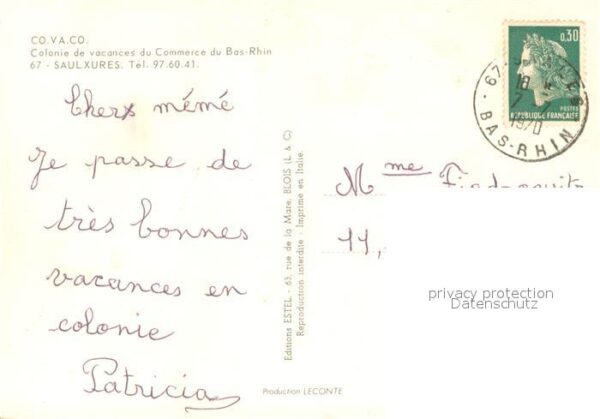 CO.VA.CO.
Colonie de vacances du Commerce du Bas-Rhin
67 - SAULXURES. Tél. 97.60.41.
Chers mémé
Je passe de
très bonnes
vacances en
colonie
Patricia
Editions ESTEL - 63, rue de la Mare, BLOIS (L & C)
Reproduction interdite - Imprimé en Italie.
Production LECONTE
0,30
POSTES
REPUBLIQUE FRANÇAISE
67
18
7
1970
BAS-RHIN
Mme
11,
privacy protection
Datenschutz